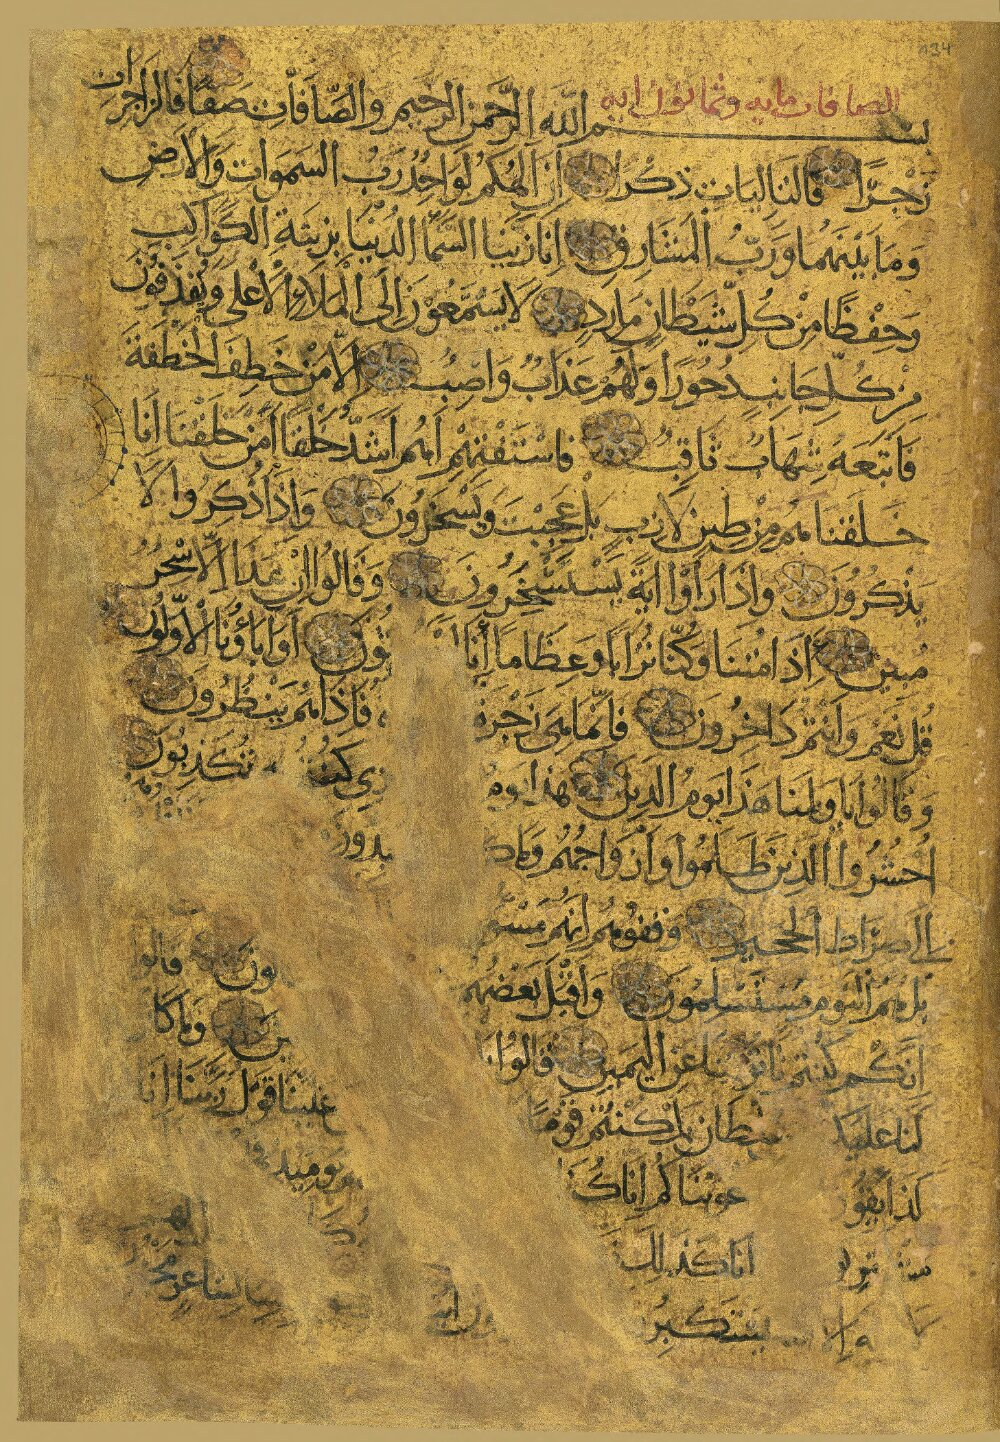 134
الصافات مايه وثمانون ايه
بسم الله الرحمن الرحيم والصافات صفا فالزاجرات
زجرا فالتاليات ذكرا ان الهكم لواحد رب السموات والارض
وما بينهما ورب المشارق انا زينا السما الدنيا بزينة الكواكب
وحفظا من كل شيطان مارد لا يسمعون الى الملاء الاعلى ويقذفون
من كل جانب دحورا ولهم عذاب واصب الا من خطف الخطفة
فاتبعه شهاب ثاقب فاستفتهم اهم اشد خلقا امن خلقنا انا
خلقناهم من طين لازب بل عجبت ويسخرون واذا ذكروا لا
يذكرون واذا راوا اية يستسخرون وقالوا ان هذا الا سحر
مبين اذا متنا وكنا ترابا وعظاما أنا ثون اواباؤنا الاولون
قل نعم وانتم داخرون فانما هي زجرة فاذا هم ينظرون
وقالوا يا ويلنا هذا يوم الدين هذا يوم ذي كنتم تكذبون
احشروا الذين ظلموا وازواجهم وما بدون
الصراط الجحيم وقفوهم انهم مسئو
بل هم اليوم مستسلمون واقبل بعضهم لون قالوا
انكم كنتم تاتوننا عن اليمين قالوا ين وما كا
لنا عليكم سلطان بل كنتم قوما علينا قول ربنا انا
لذايقو غويناكم انا كنا يوميذ
انا كذلك
يستكبر ون ائنا